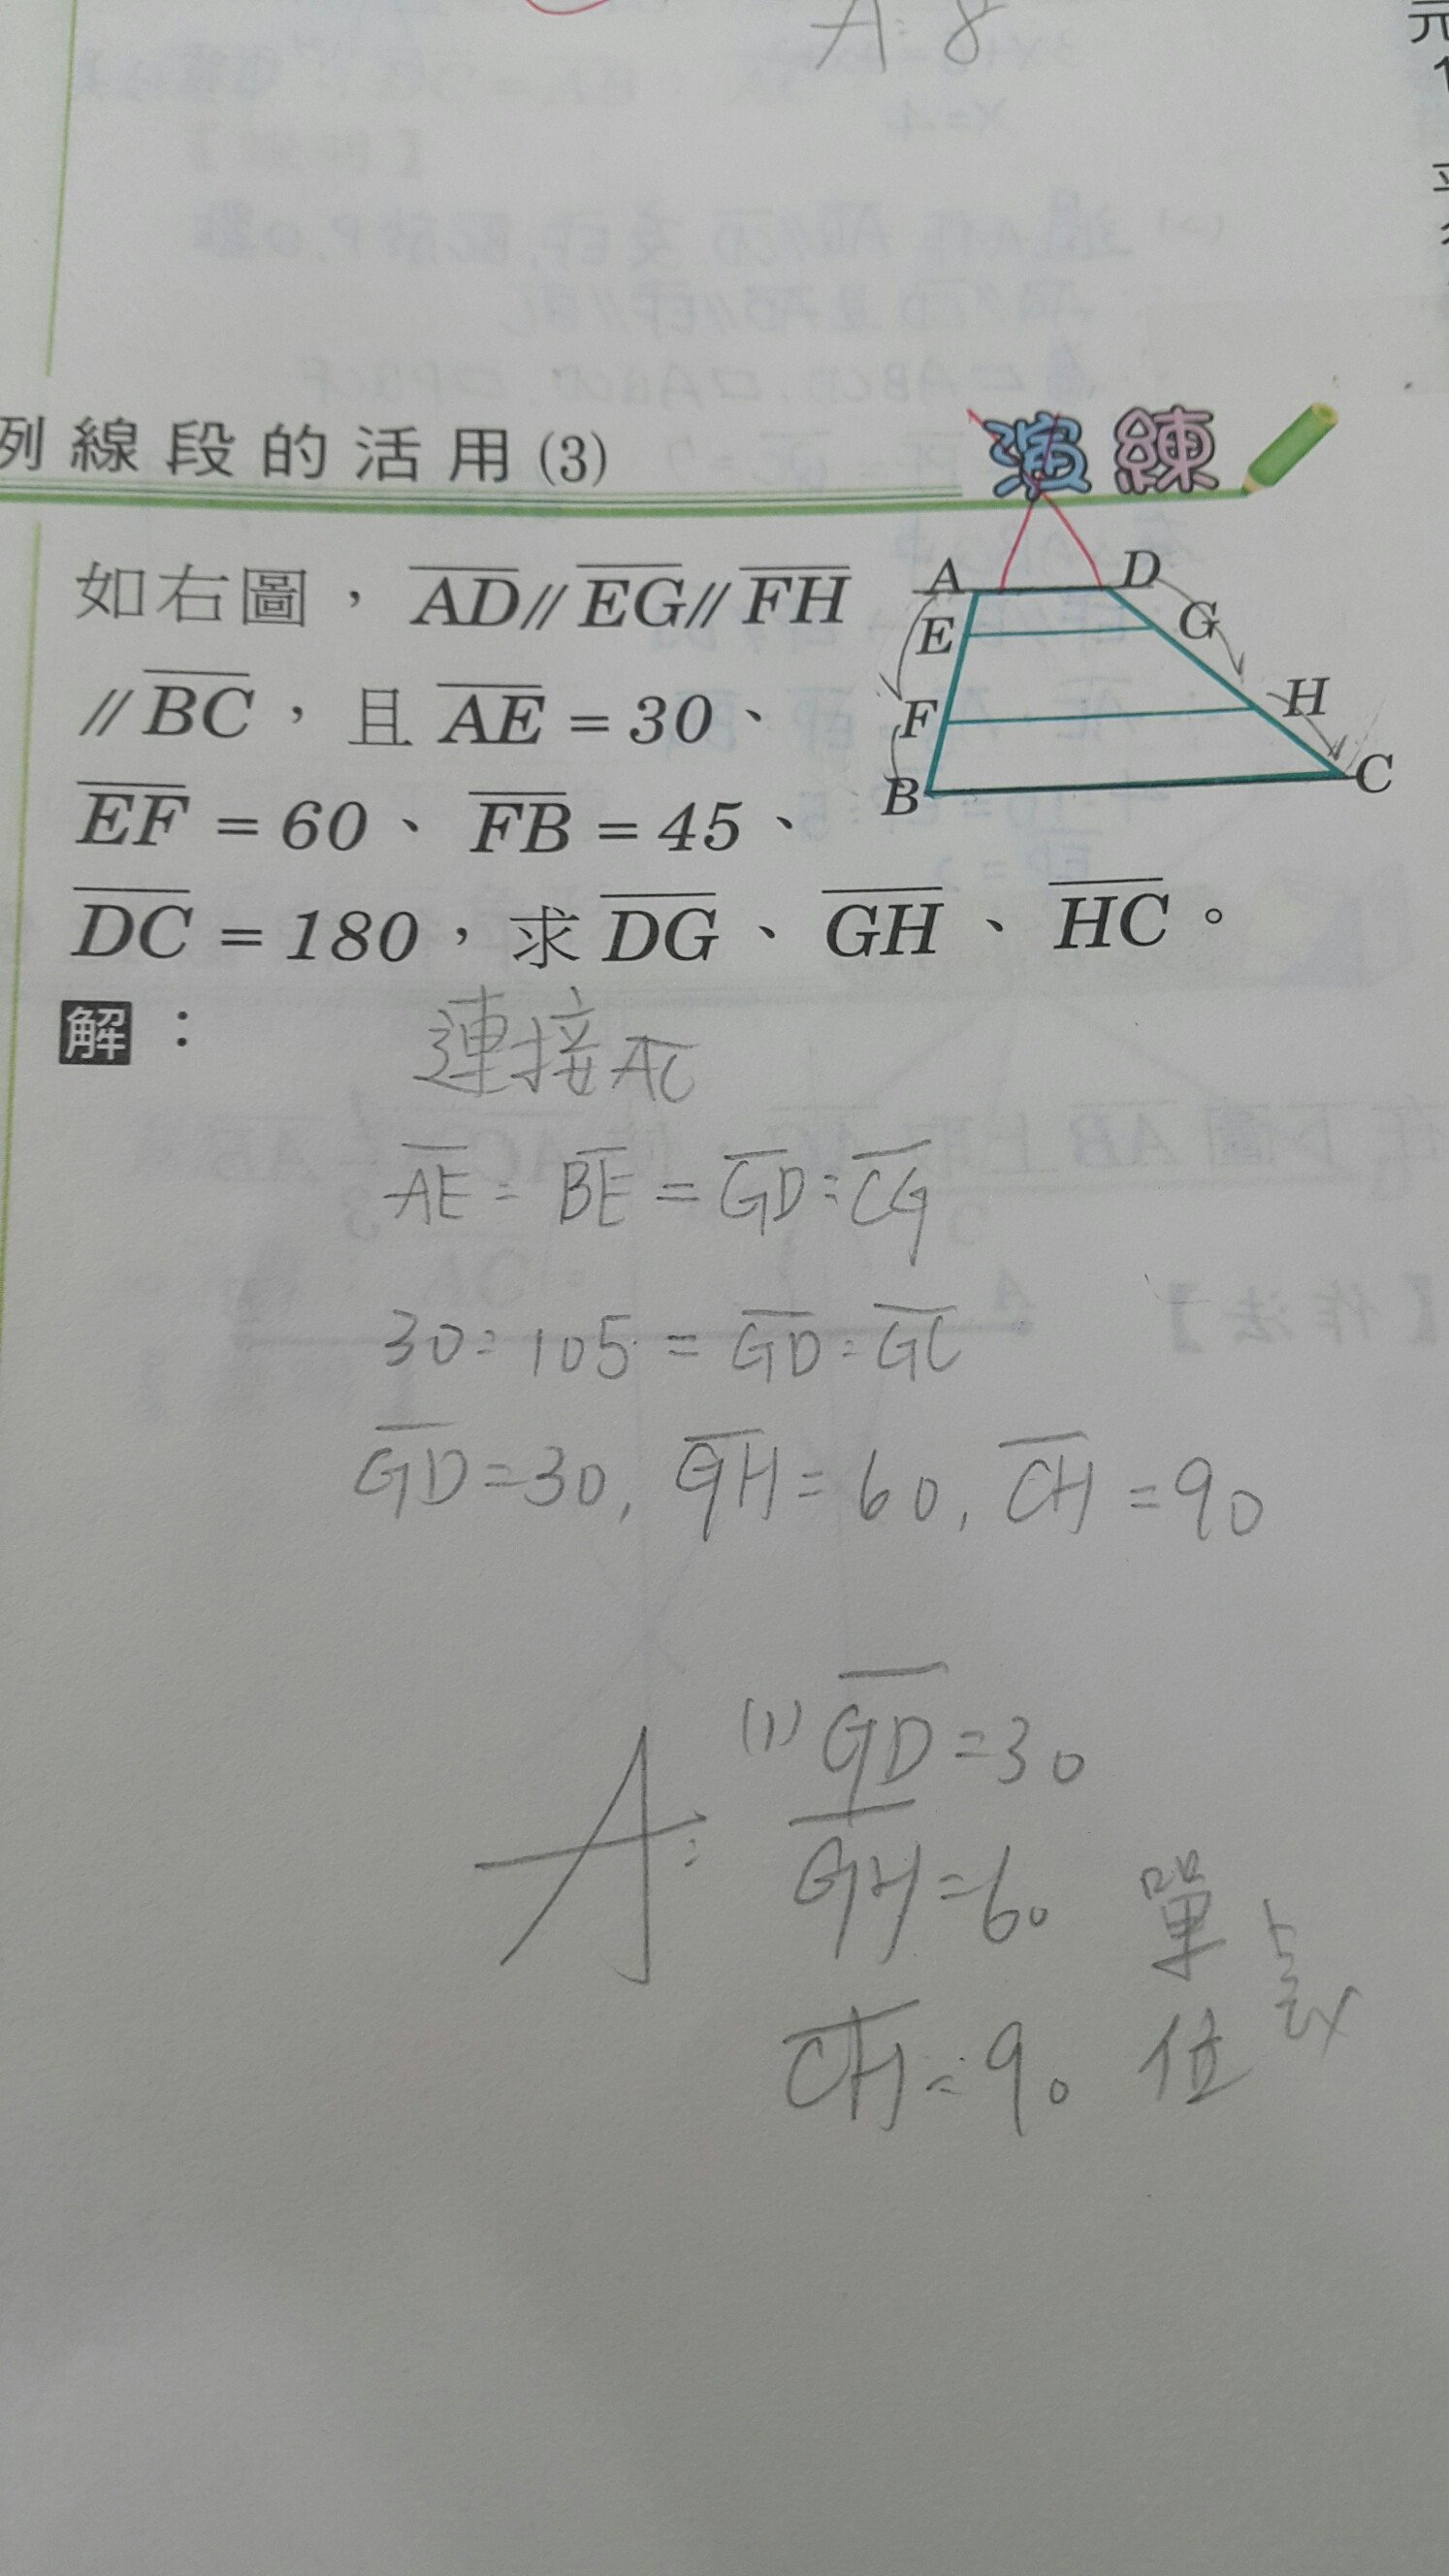 A: 8
列線段的活用(3) 演練
如右圖，AD // EG // FH
// BC，且 AE = 30、
EF = 60、FB = 45、
DC = 180，求 DG、GH、HC。
A D
E G
F H
B C
解：
連接AC
AE : BE = GD : CG
30 : 105 = GD : GC
GD = 30, GH = 60, CH = 90
A: (1) GD = 30
GH = 60 單
CH = 90 位
元
1